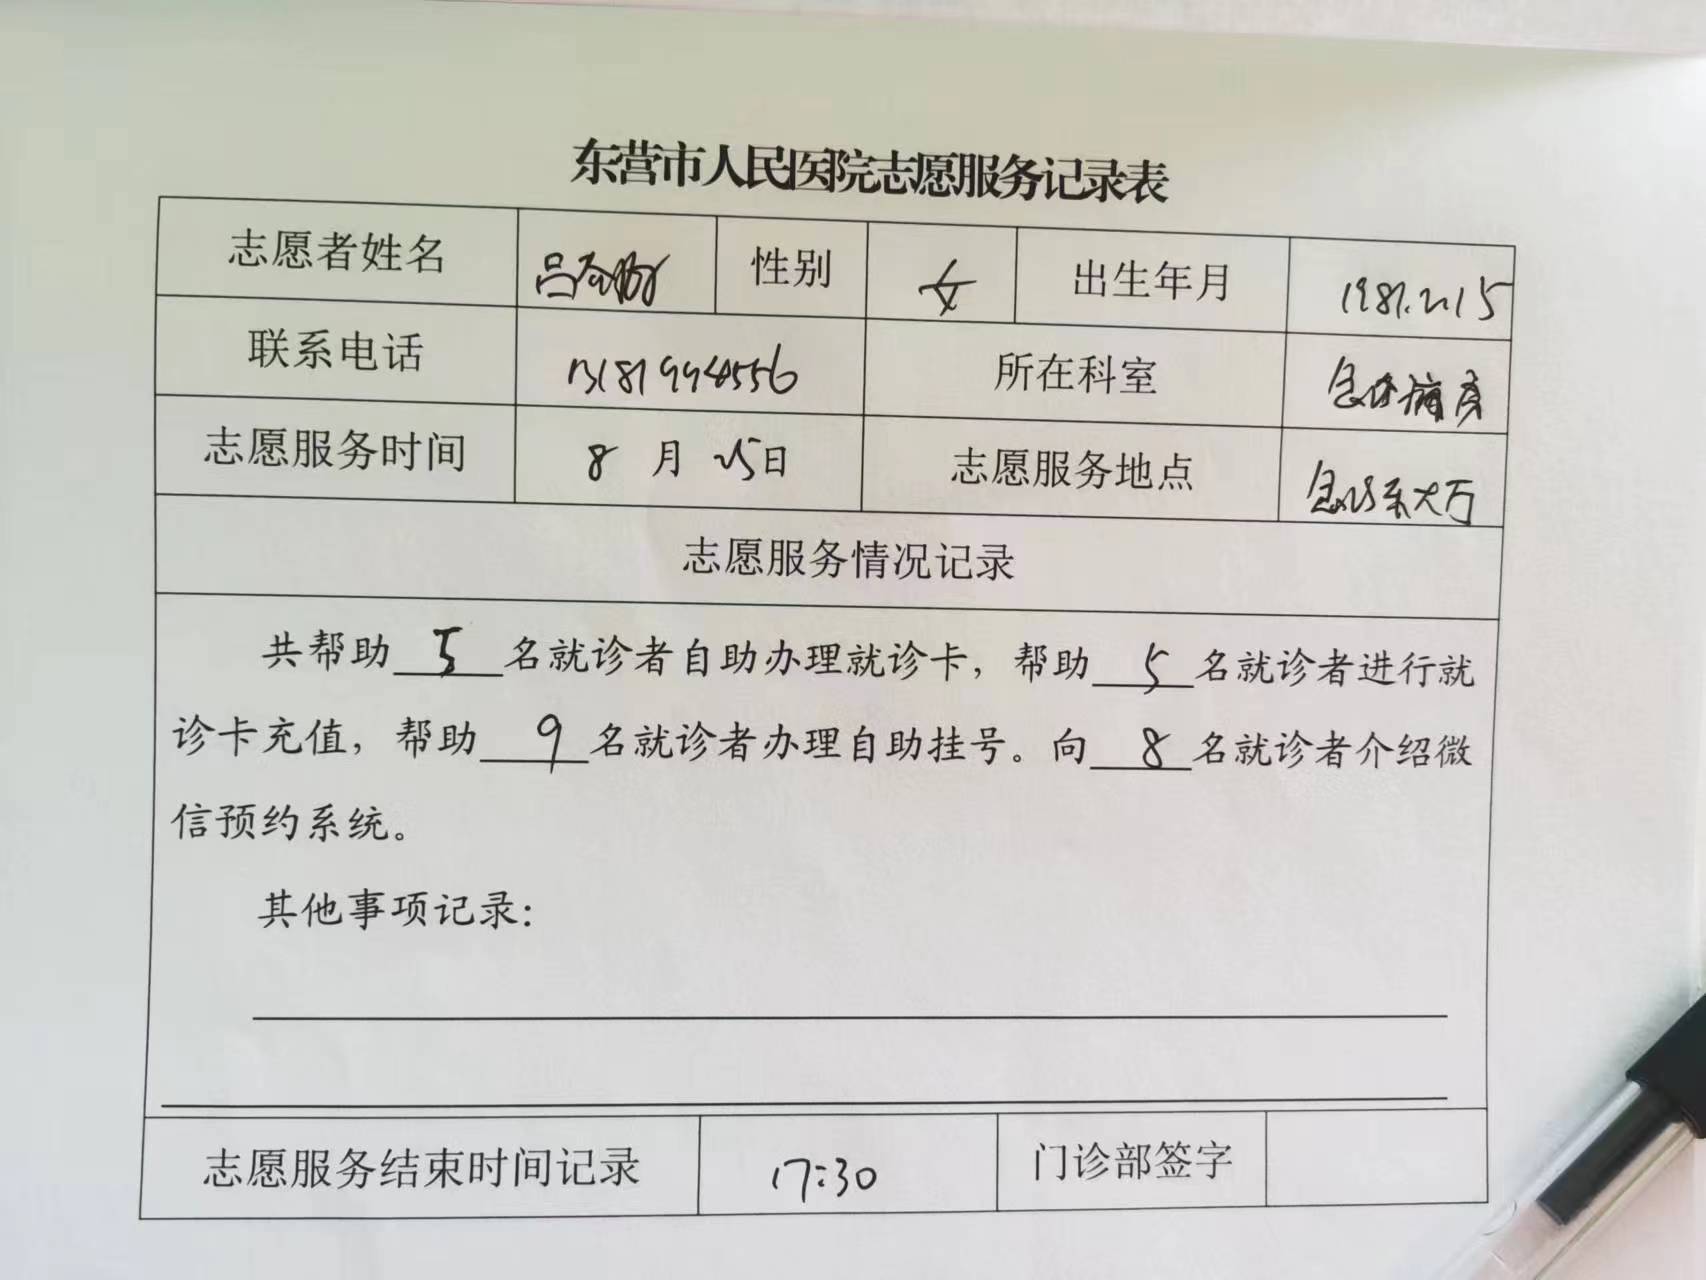 东营市人民医院志愿服务记录表
志愿者姓名 吕 性别 女 出生年月 1981.2.15
联系电话 13181994556 所在科室 急诊病房
志愿服务时间 8月25日 志愿服务地点 急诊东大厅
志愿服务情况记录
共帮助5名就诊者自助办理就诊卡，帮助5名就诊者进行就
诊卡充值，帮助9名就诊者办理自助挂号。向8名就诊者介绍微
信预约系统。
其他事项记录：
志愿服务结束时间记录 17:30 门诊部签字